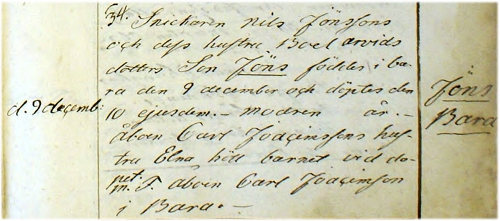 d. 9 december:
34. Snickaren Nils Jönssons
och dess hustru Boel Arvids
dotters Son Jöns föddes i Ba
ra den 9 december och döptes den
10 ejusdem. — modren är. —
Åboen Carl Joaçimssons hus
tru Elna höll barnet vid do
pet. T. åboen Carl Joaçimson
i Bara. —
Jöns
Bara